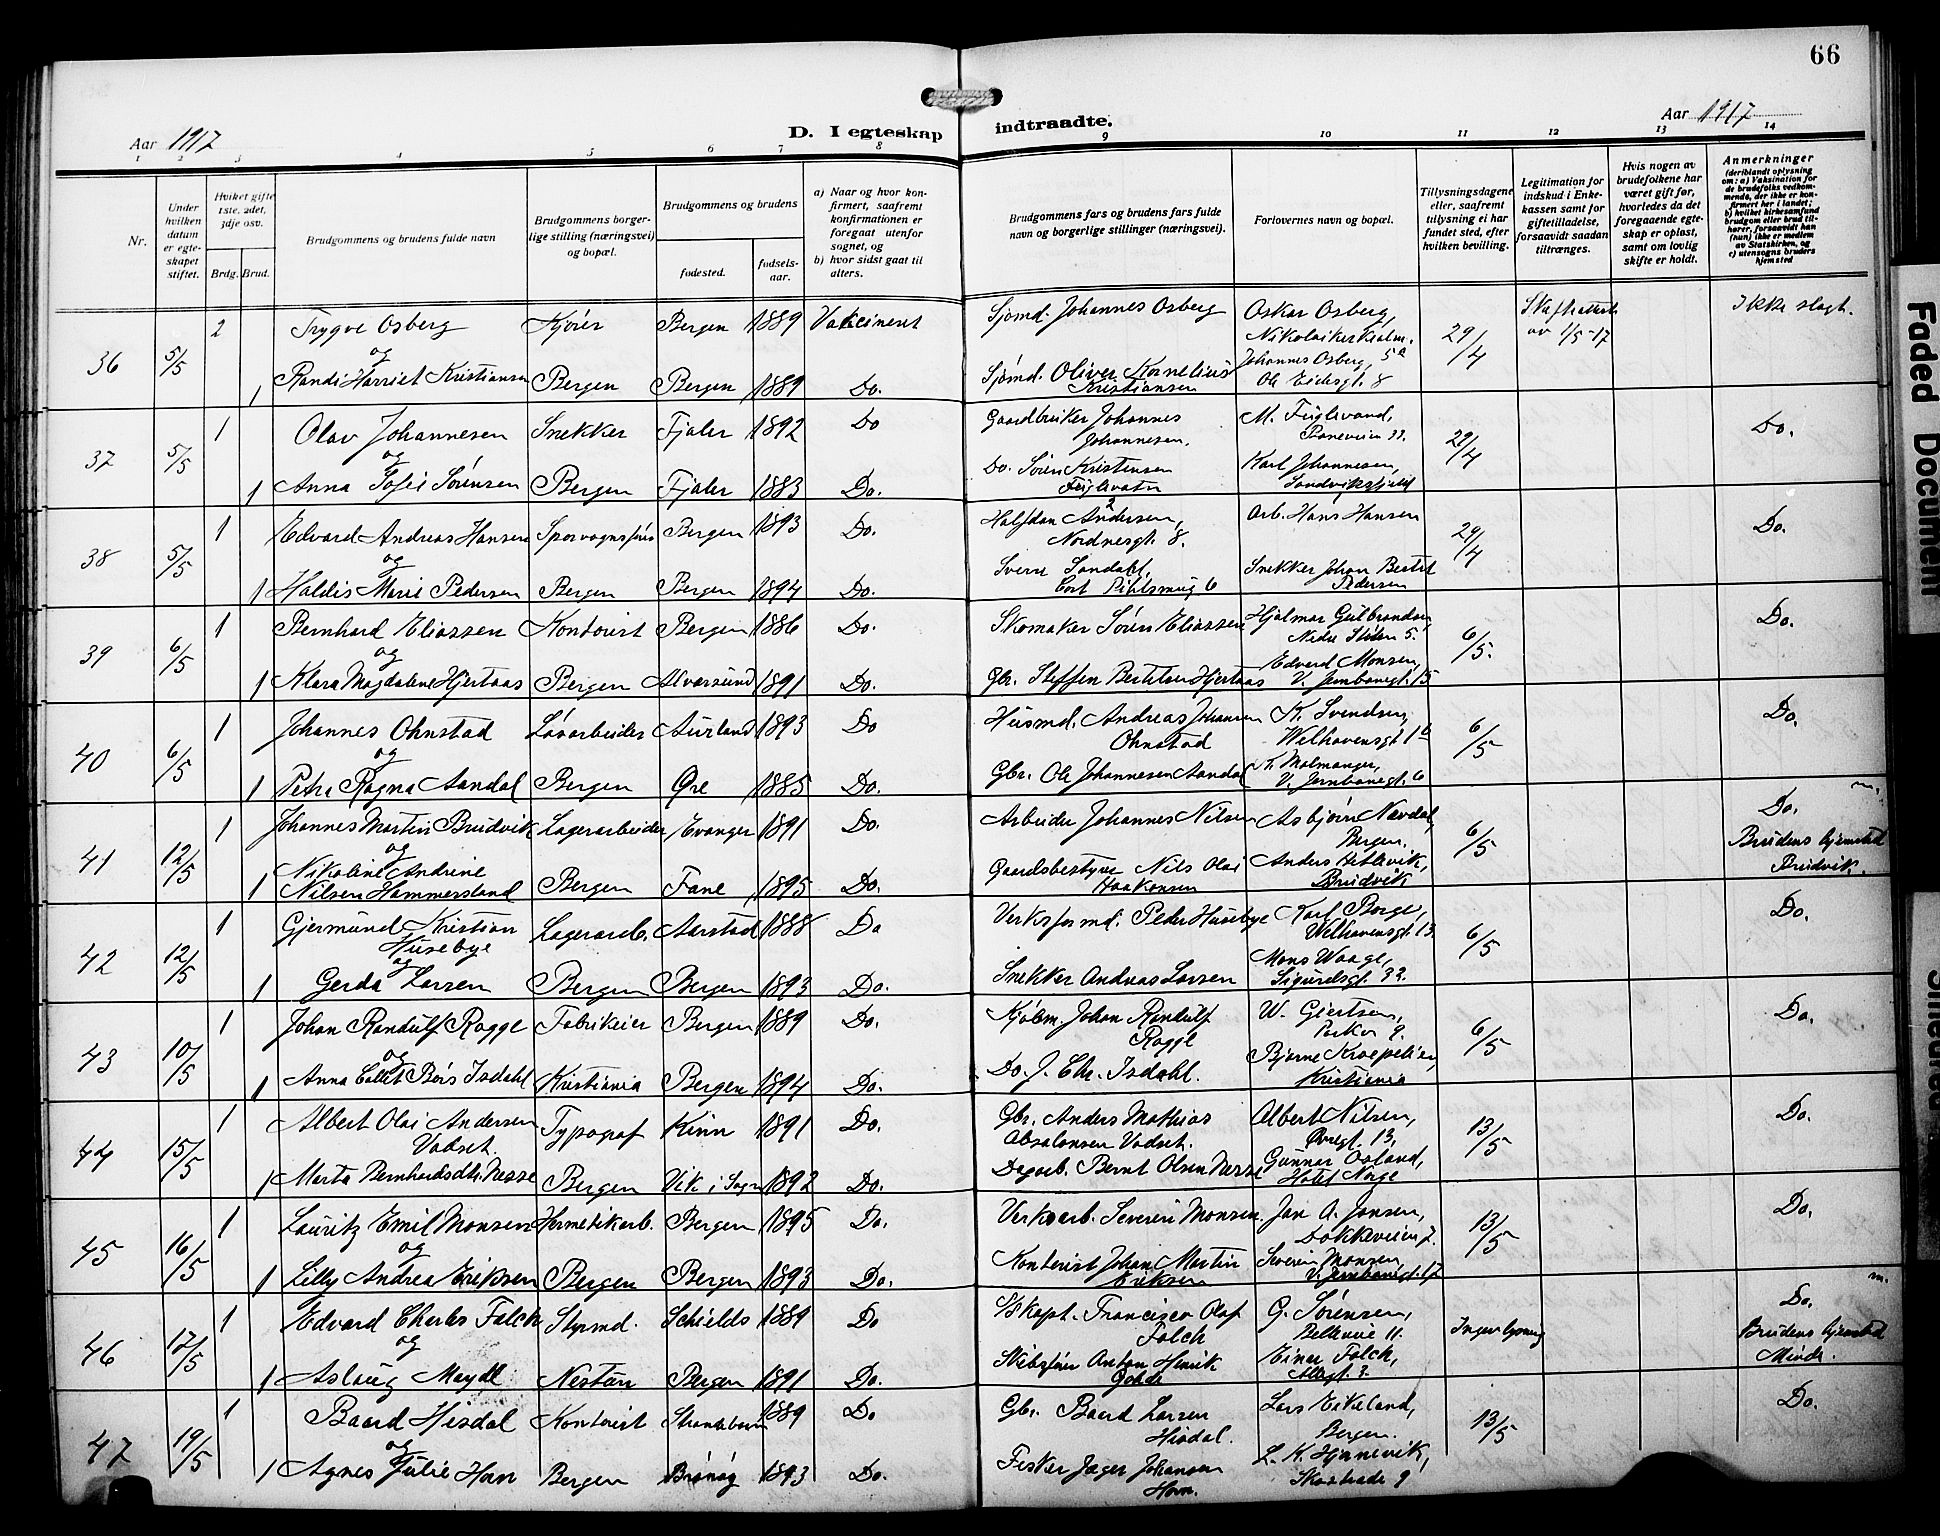 66
Aar 1917
D. I egteskap indtraadte.
Aar 1917
1 2 3 4 5 6 7 8 9 10 11 12 13 14
Nr.
Under hvilken datum er egteskapet stiftet.
Hvilket gifte 1ste, 2det, 3dje osv.
Brdg. Brud.
Brudgommens og brudens fulde navn
Brudgommens borgerlige stilling (næringsvei) og bopæl.
Brudgommens og brudens
fødested.
fødselsaar.
a) Naar og hvor konfirmert, saafremt konfirmationen er foregaat utenfor sognet, og
b) hvor sidst gaat til alters.
Brudgommens fars og brudens fars fulde navn og borgerlige stillinger (næringsvei).
Forlovernes navn og bopæl.
Tillysningsdagene eller, saafremt tillysning ei har fundet sted, efter hvilken bevilling.
Legitimation for indskud i Enkekassen samt for giftetilladelse, forsaavidt saadan tiltrænges.
Hvis nogen av brudefolkene har været gift før, hvorledes da det foregaaende egteskap er opløst, samt om lovlig skifte er holdt.
Anmerkninger (deriblandt oplysning om: a) Vaksination for de brudefolks vedkommende, der ikke er konfirmert her i landet; b) hvilket kirkesamfund brudgom eller brud tilhører, forsaavidt han (hun) ikke er medlem av Statskirken, og c) utensogns bruders hjemsted
36 5/5 2 Trygve Osberg Kjører Bergen 1889 Vakcinert Sjømd. Johannes Osberg Oskar Osberg, Nikolaikerkealm. 5a 29/4 Skifteattest av 1/5-17 Ikke slegt.
og
1 Randi Harriet Kristiansen Bergen Bergen 1889 Do. Sjømd. Oliver Kornelius Kristiansen Johannes Osberg, Ole Eidesgt. 8
37 5/5 1 Olav Johannesen Snekker Fjaler 1892 Do Gaardbruker Johannes Johannesen. M. Fuglevand, 29/4 Do.
og
1 Anna Sofie Sørensen Bergen Fjaler 1883 Do. Do. Søren Kristensen Fuglevatn Karl Johannesen, Sandviksfjeld
38 5/5 1 Edvard Andreas Hansen Sporvognsfører Bergen 1893 Do. Halfdan Andersen, Nordnesgt. 8. Arb. Hans Hansen 29/4 Do.
og
1 Haldis Marie Pedersen Bergen Bergen 1894 Do. Sverre Sandahl, Cort Pihlsmug 6 Snekker Johan Pedersen
39 6/5 1 Bernhard Eliassen Kontorist Bergen 1886 Do. Skomaker Søren Eliassen Hjalmar Gulbrandsen, Nedre Stølen 5. 6/5. Do.
og
1 Klara Magdalene Hjertaas Bergen Alversund 1891 Do. Gbr. Steffen Bertelsen Hjertaas Edvard Monsen, V. Jernbanegt. 15
40 6/5 1 Johannes Ohnstad Løsarbeider Aurland 1893 Do Husmd. Andreas Johansen Ohnstad K. Svendsen, Welhavensgt. 6/5 Do.
og
1 Petra Ragna Aandal Bergen Øre 1885 Do. Gbr. Ole Johannesen Aandal K. Malmanger, V. Jernbanegt. 6
41 12/5 1 Johannes Martin Brudvik Lagerarbeider Evanger 1891 Do. Arbeider Johannes Nilsen Asbjørn Navdal, Bergen. 6/5 Do. Brudens hjemsted Brudvik.
og
1 Nikoline Andrine Nilsen Hammersland Bergen Fane 1895 Do. Gaardsbestyrer Nils Olai Haakonsen Anders Hetlevik, Brudvik
42 12/5 1 Gjermund Kristian Husebye Lagerarb. Aarstad 1888 Do Verksformd. Peder Husebye Karl Borge, Welhavensgt. 13. 6/5 Do.
og
1 Gerda Larsen Bergen Bergen 1893 Do. Snekker Andreas Larsen Mons Waage, Sigurdsgt. 32.
43 10/5 1 Johan Randulf Rogge Fabrikeier Bergen 1889 Do. Kjøbm. Johan Randulf Rogge W. Giertsen, Parkv 9. 6/5 Do.
og
1 Anna Collet Børs Isdahl Kristiania Bergen 1894 Do. Do. J. Chr. Isdahl. Bjarne Kroepelien, Kristiania
44 15/5 1 Albert Olai Andersen Vadset. Typograf Kinn 1891 Do. Gbr. Anders Mathias Absalonsen Vadset. Albert Nilsen, Øvregt. 13. 13/5 Do.
1 Marta Bernhardsdtr. Nesse Bergen Vik i Sogn 1892 Do. Dagarb. Bernt Olsen Nesse Gunnar Osland, Hotel Norge
45 16/5 1 Lauritz Emil Monsen Hermetikarb. Bergen 1895 Do. Verksarb. Severin Monsen Jan A. Jansen, Dokkeveien 7. 13/5 Do.
og
1 Lilly Andrea Eriksen Bergen Bergen 1893 Do. Kontorist Johan Martin Eriksen Severin Monsen, V. Jernbanegt. 17
46 17/5 1 Edvard Charles Falch Styrmd. Schields 1889 Do Skapt. Francisco Olaf Falch G. Sørensen, Bellevue 11. Ingen lysning Do. Brudens hjemsted Minde.
og
1 Aslaug Meydell Nestun Bergen 1891 Do. Skibsfører Anton Henrik Einar Falch,
47 19/5 1 Baard Hisdal Kontorist Strandebarm 1889 Do Gbr. Baard Larsen Hisdal. Lars Eikeland, Bergen. 13/5 Do.
og
1 Agnes Julie Horn Bergen Brønøy 1893 Do. Fisker Jager Johansen Horn. L. K. Hjarnevik,
Faded Document